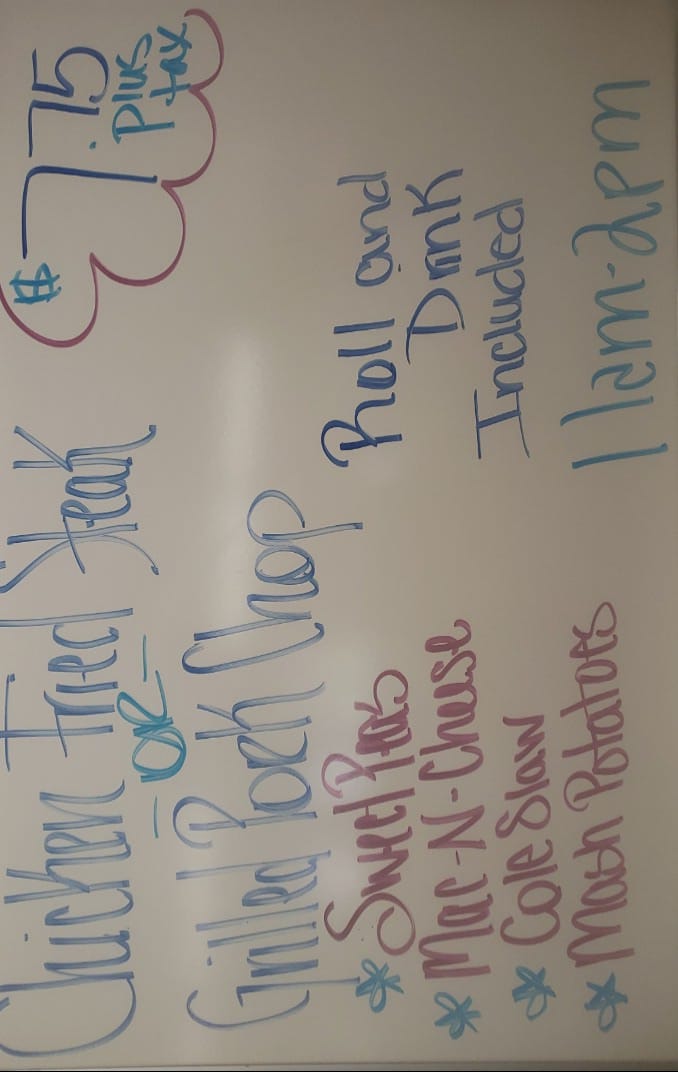 Chicken Fried Steak
-OR-
Grilled Pork Chop
$7.75
plus
tax
* Sweet Peas
* Mac-N-Cheese
* Cole Slaw
* Mash Potatoes
Roll and
Drink
Included
11am-2pm